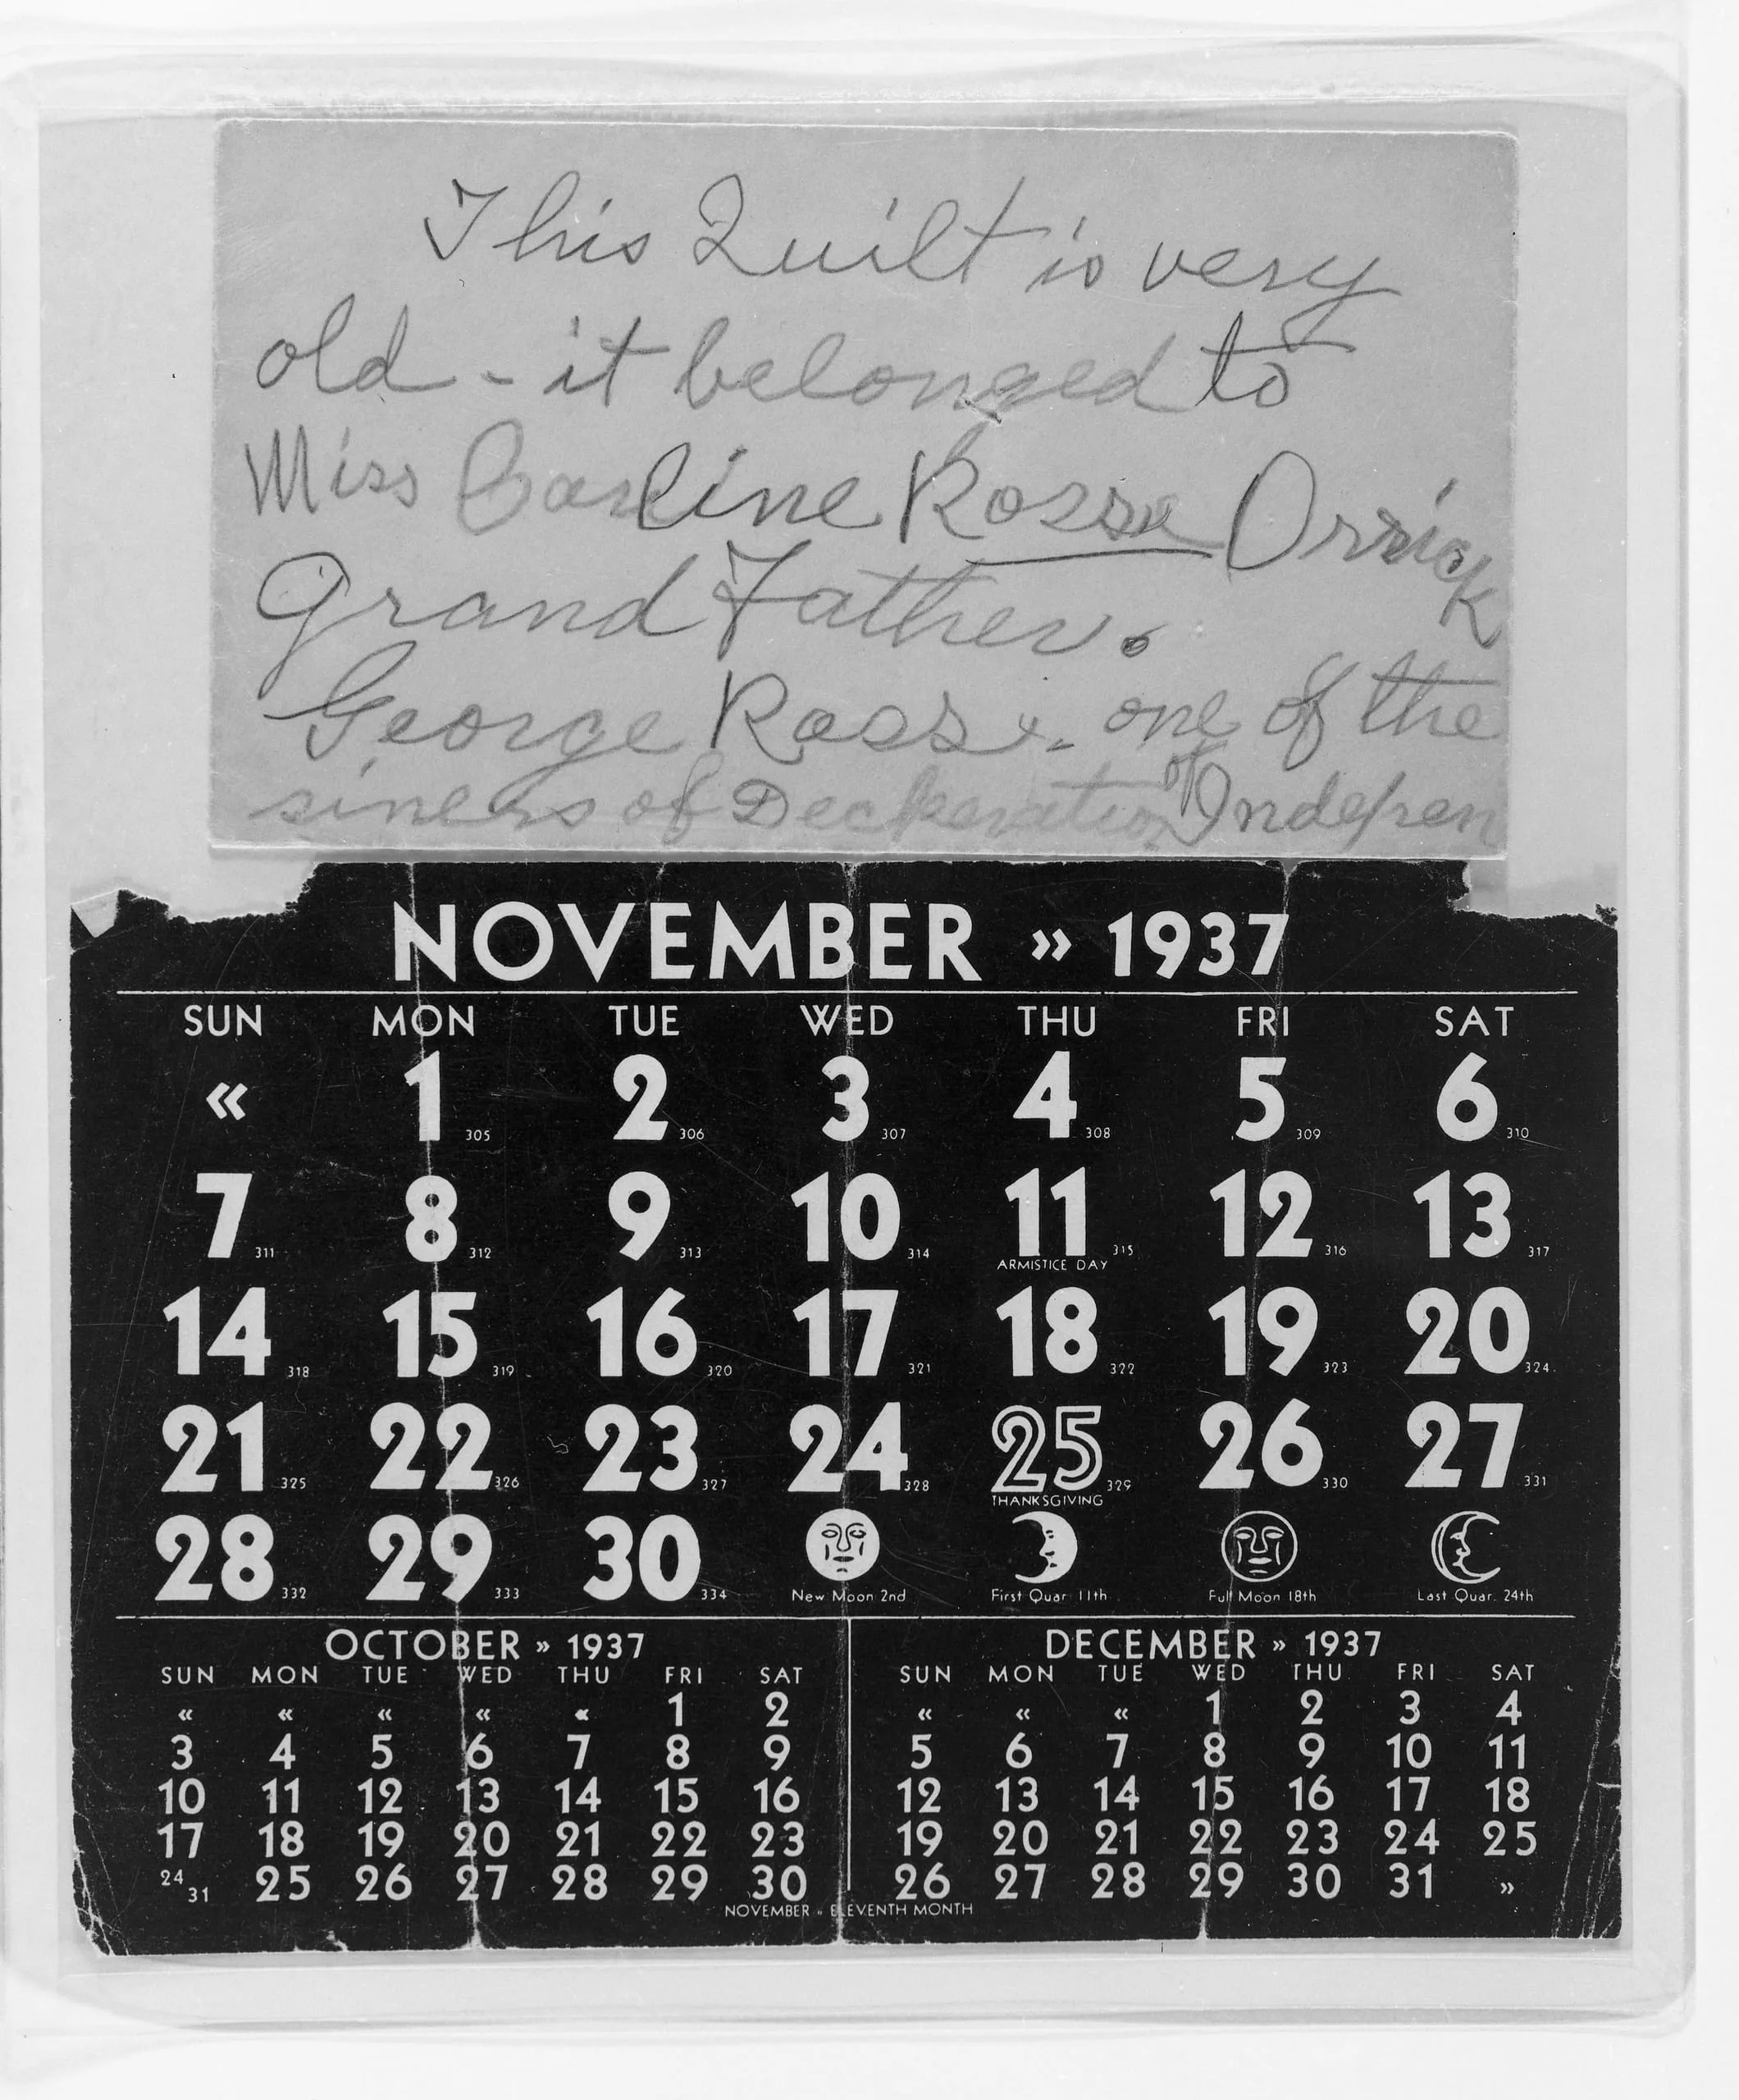 This Quilt is very
old - it belonged to
Miss Carline Rosse Orrick
Grand Father.
George Ross - one of the
siners of Deckeration of Indepen
NOVEMBER » 1937
SUN MON TUE WED THU FRI SAT
« 1 305 2 306 3 307 4 308 5 309 6 310
7 311 8 312 9 313 10 314 11 315 12 316 13 317
ARMISTICE DAY
14 318 15 319 16 320 17 321 18 322 19 323 20 324
21 325 22 326 23 327 24 328 25 329 26 330 27 331
THANKSGIVING
28 332 29 333 30 334
New Moon 2nd First Quar 11th Full Moon 18th Last Quar. 24th
OCTOBER » 1937
SUN MON TUE WED THU FRI SAT
« « « « « 1 2
3 4 5 6 7 8 9
10 11 12 13 14 15 16
17 18 19 20 21 22 23
24 31 25 26 27 28 29 30
DECEMBER » 1937
SUN MON TUE WED THU FRI SAT
« « « 1 2 3 4
5 6 7 8 9 10 11
12 13 14 15 16 17 18
19 20 21 22 23 24 25
26 27 28 29 30 31 »
NOVEMBER « ELEVENTH MONTH